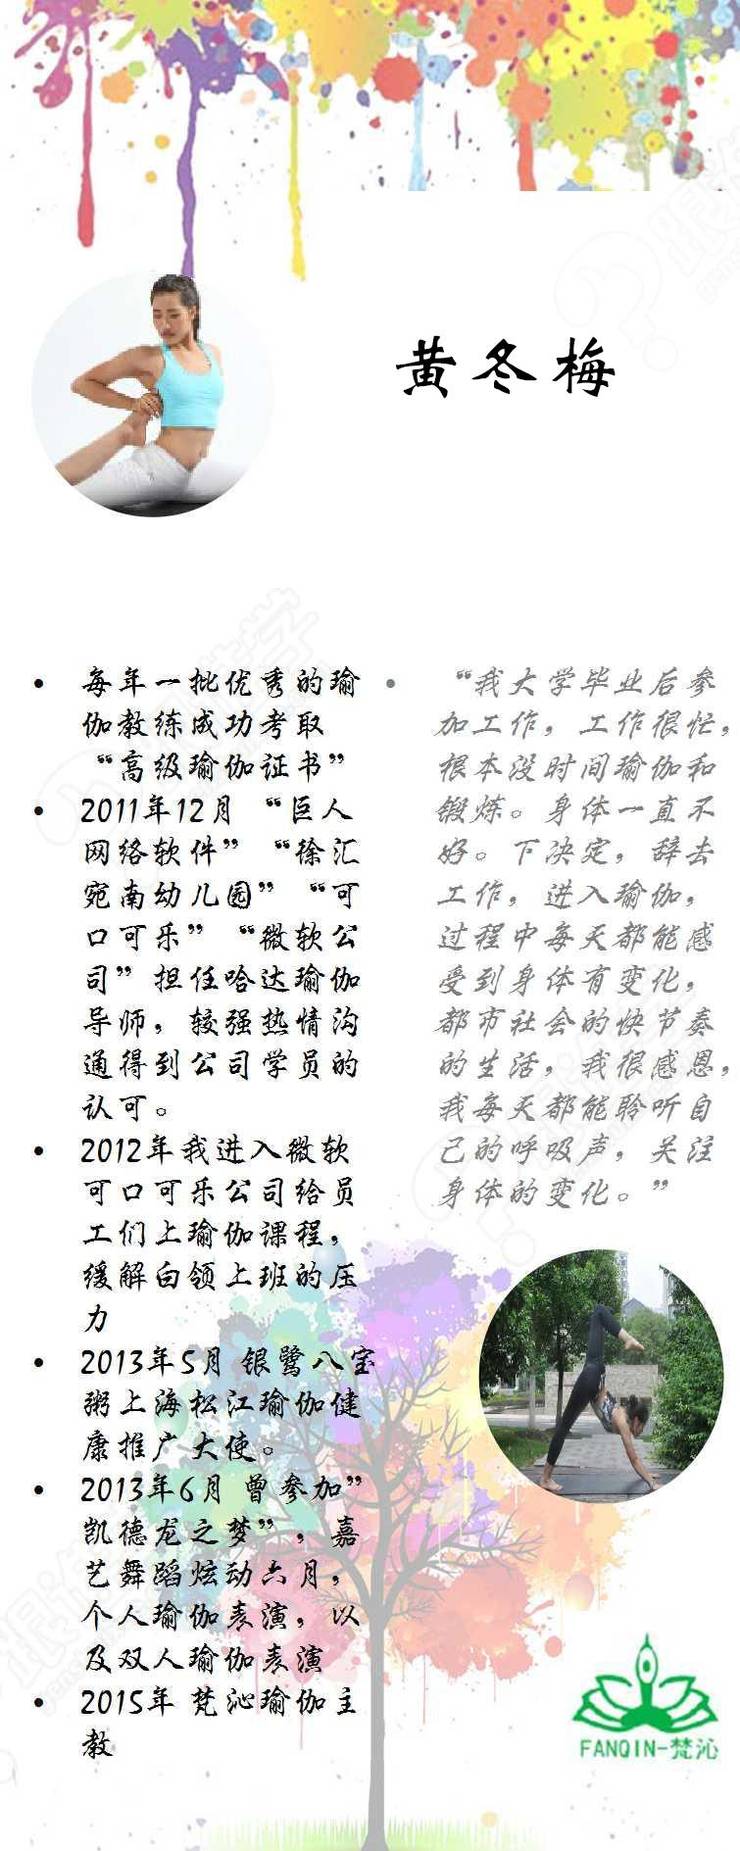 黄冬梅
• 每年一批优秀的瑜
伽教练成功考取
“高级瑜伽证书”
• 2011年12月 “巨人
网络软件” “徐汇
宛南幼儿园” “可
口可乐” “微软公
司” 担任哈达瑜伽
导师，较强热情沟
通得到公司学员的
认可。
• 2012年我进入微软
可口可乐公司给员
工们上瑜伽课程，
缓解白领上班的压
力
• 2013年5月 银鹭八宝
粥上海松江瑜伽健
康推广大使。
• 2013年6月 曾参加”
凯德龙之梦”，嘉
艺舞蹈炫动六月，
个人瑜伽表演，以
及双人瑜伽表演
• 2015年 梵沁瑜伽主
教
• “我大学毕业后参
加工作，工作很忙，
根本没时间瑜伽和
锻炼。身体一直不
好。下决定，辞去
工作，进入瑜伽，
过程中每天都能感
受到身体有变化，
都市社会的快节奏
的生活，我很感恩，
我每天都能聆听自
己的呼吸声，关注
身体的变化。”
FANQIN-梵沁